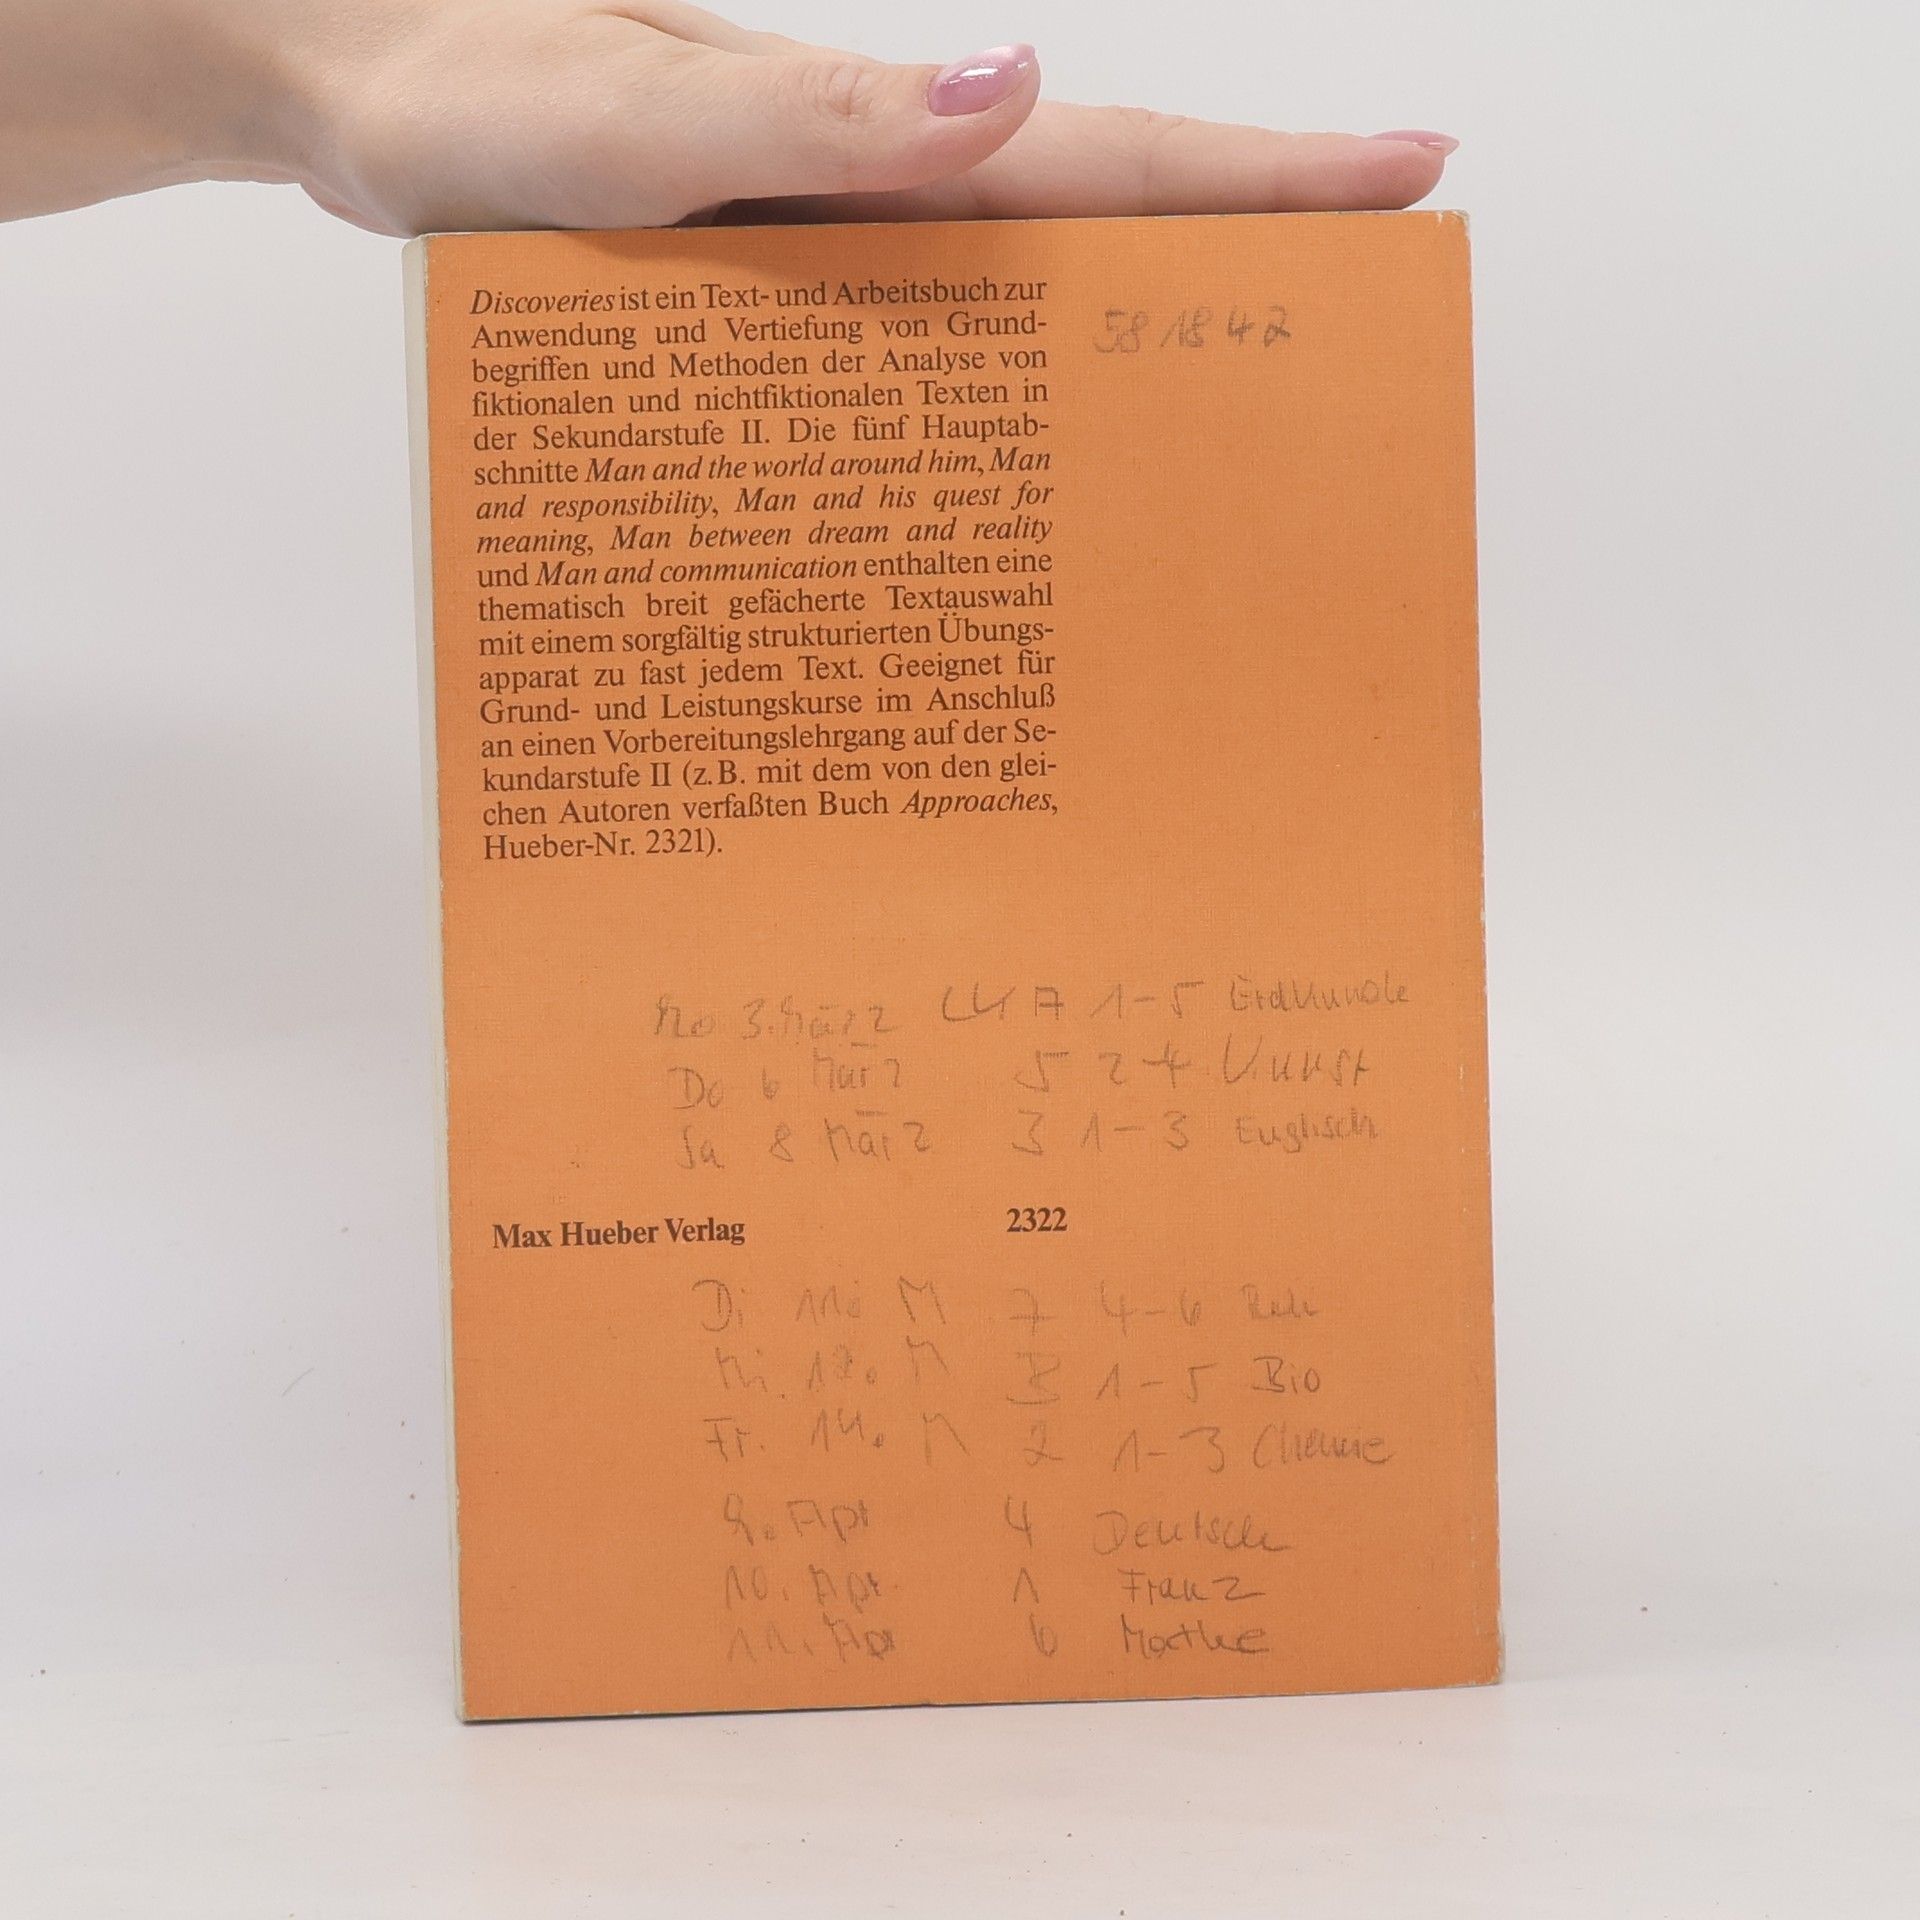 Discoveries ist ein Text- und Arbeitsbuch zur
Anwendung und Vertiefung von Grund-
begriffen und Methoden der Analyse von
fiktionalen und nichtfiktionalen Texten in
der Sekundarstufe II. Die fünf Hauptab-
schnitte Man and the world around him, Man
and responsibility, Man and his quest for
meaning, Man between dream and reality
und Man and communication enthalten eine
thematisch breit gefächerte Textauswahl
mit einem sorgfältig strukturierten Übungs-
apparat zu fast jedem Text. Geeignet für
Grund- und Leistungskurse im Anschluß
an einen Vorbereitungslehrgang auf der Se-
kundarstufe II (z. B. mit dem von den glei-
chen Autoren verfaßten Buch Approaches,
Hueber-Nr. 2321).
58 18 42
Mo 3. März 1-5 Erdkunde
Do 6 März 5 2-4 Kunst
Sa 8 März 3 1-3 Englisch
Max Hueber Verlag 2322
Di 11. M 7 4-6
Mi. 12. M 1-5 Bio
Fr. 14. M 2 1-3 Chemie
Apr 4 Deutsch
10. Apr. 1 Franz
11. Apr 6 Mathe